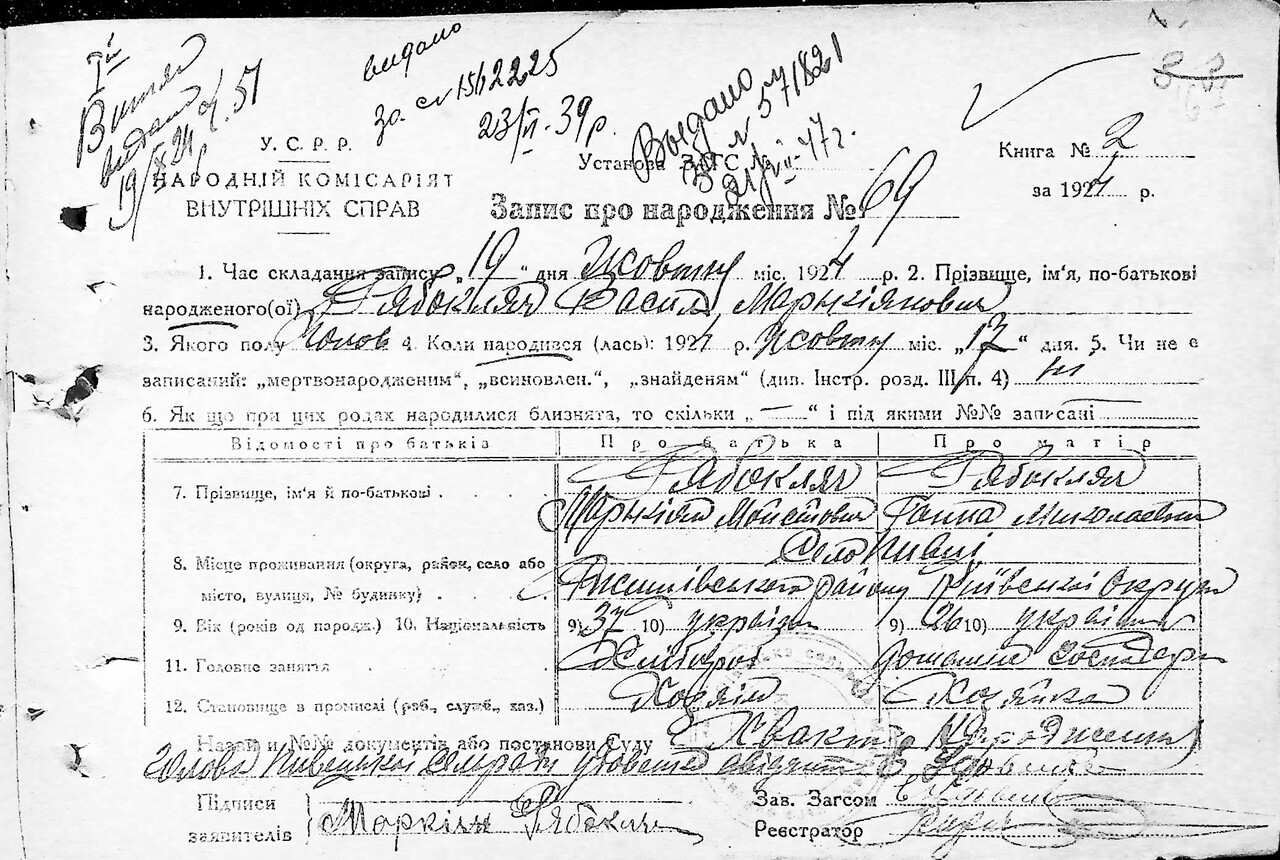 Витяг
видано
19/X 24 р.
видано
за № 1562225
23/VI-39 р.
Выдано
№ 571821
47 г.
У. С. Р. Р.
НАРОДНІЙ КОМІСАРІЯТ
ВНУТРІШНІХ СПРАВ
Установа ЗАГС
Книга № 2
за 1924 р.
Запис про народження № 69
1. Час складання запису „19“ дня Жовтня міс. 1924 р. 2. Прізвище, ім'я, по-батькові
народженого(ої) Рябокляч Василь Маркіянович
3. Якого полу Чолов 4. Коли народився (лась): 1924 р. Жовтня міс. „17“ дня. 5. Чи не є
записаний: „мертвонародженим“, „всиновлен.“, „знайденям“ (див. Інстр. розд. III п. 4) ні
6. Як що при цих родах народилися близнята, то скільки „—“ і під якими №№ записані —
Відомості про батьків Про батька Про матір
7. Прізвище, ім'я й по-батькові Рябокляч Рябокляч
Маркіян Мойсеович Ганна Миколаевна
Село Пивці
8. Місце проживання (округа, район, село або
місто, вулиця, № будинку) Ржищівського району Київської Округи
9. Вік (років од народж.) 10. Національність 9) 37 10) україн 9) 26 10) україн
11. Головне заняття Хлібороб домашне господар
12. Становище в промислі (роб., служб., хаз.) Хозяїн Хозяйка
Назви и №№ документів або постанови Суду Хвакт Народження
Голова Пивецької сельради
Підписи
заявителів Маркіян Рябокляч
Зав. Загсом
Реєстратор